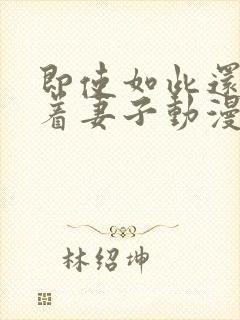 即使如此還
着妻子動漫
林绍坤